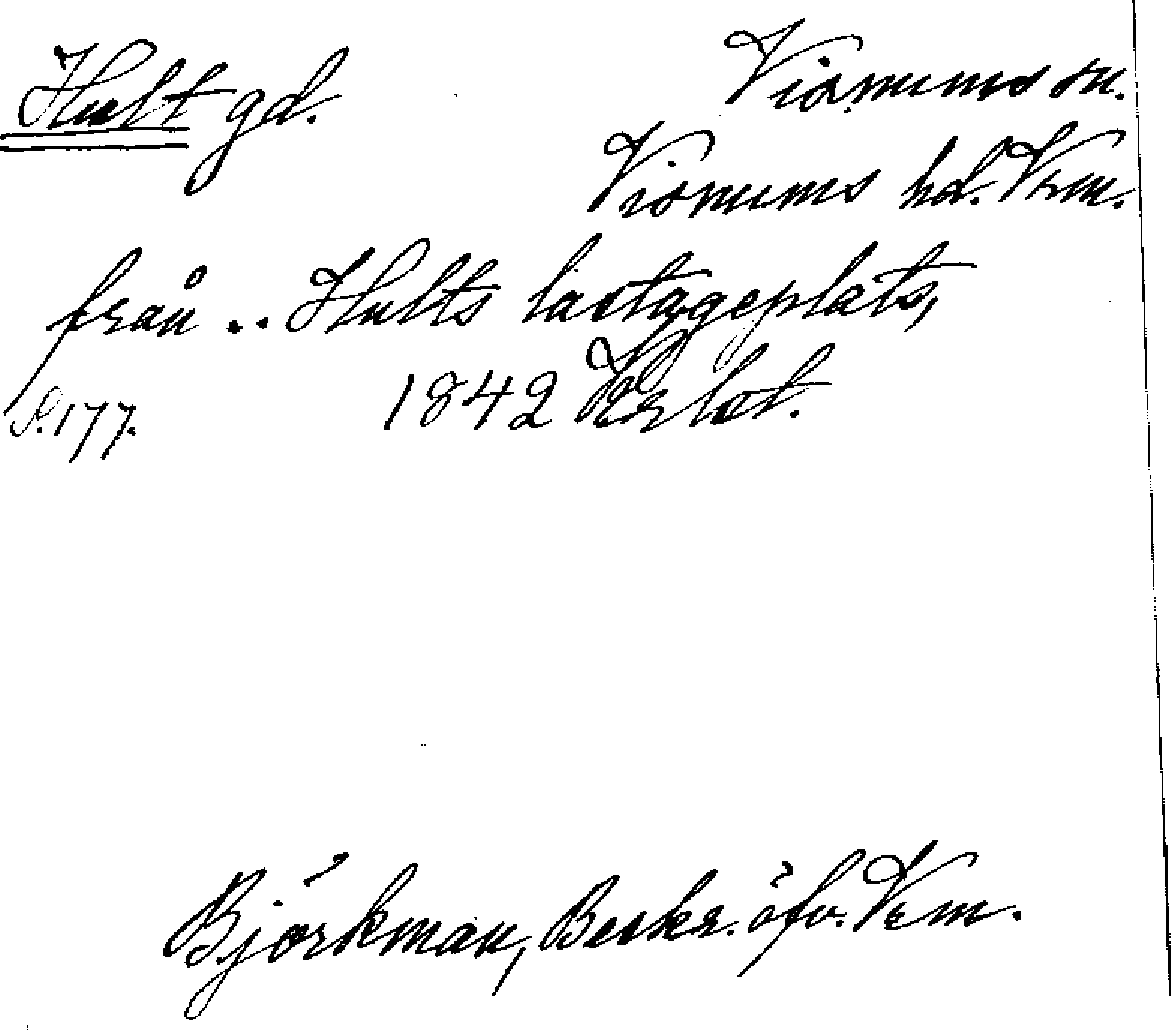 Hult gd. Visnums sn.
Visnums hd. Vrm.
från .. Hults lastageplats,
S. 177. 1842
Björkman, Beskr. öfv. Vrm.